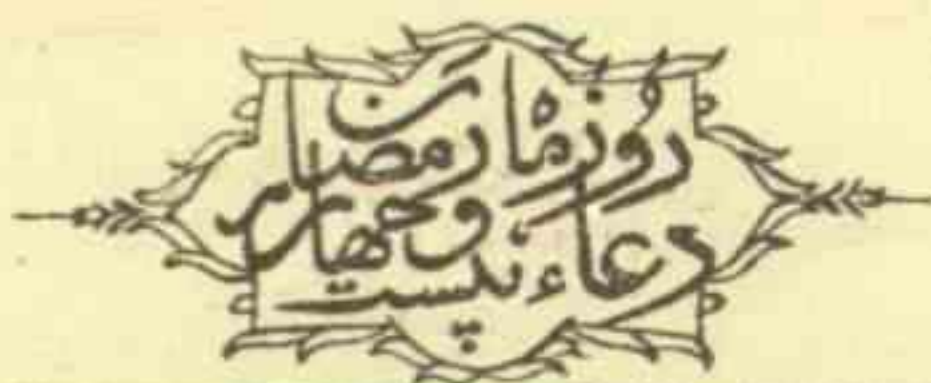 دعاء بیست و چهارم
روز ماه رمضان